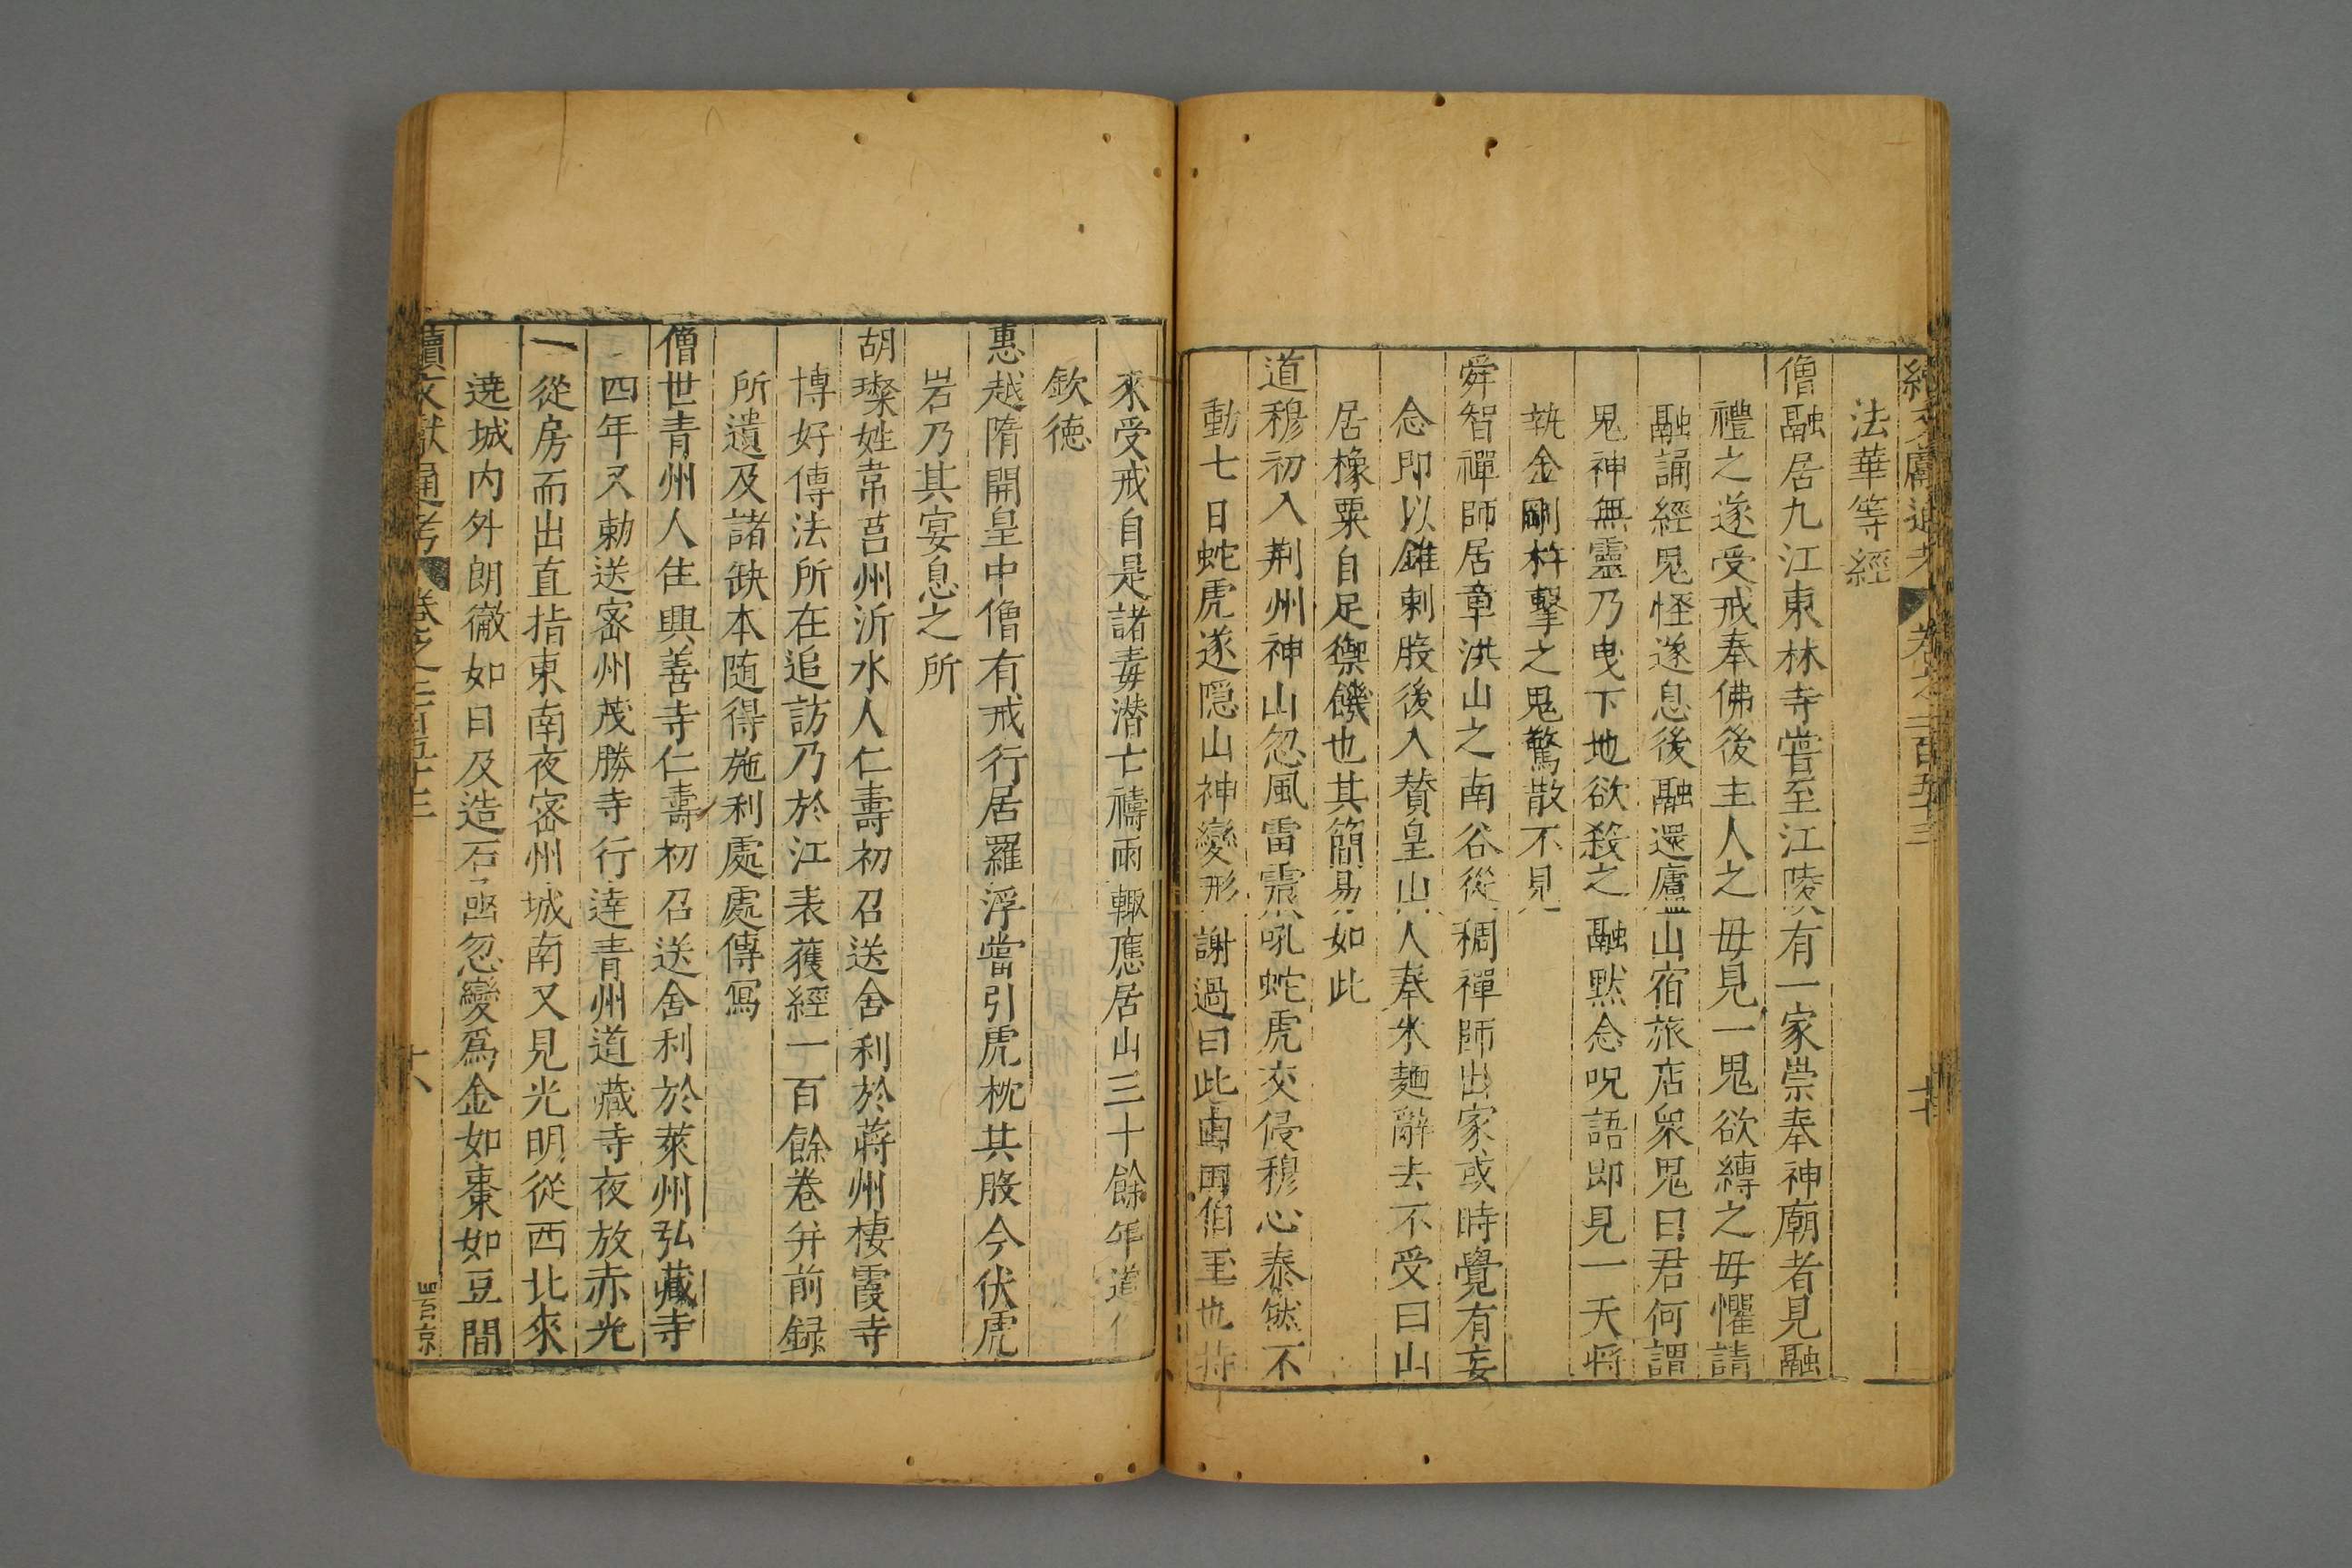 續文獻通考 卷之二百五十三
法華等經
僧融居九江東林寺嘗至江陵有一家崇奉神廟者見融
禮之遂受戒奉佛後主人之毋見一鬼欲縛之毋懼請
融誦經鬼怪遂息後融還廬山宿旅店衆鬼曰君何謂
鬼神無靈乃曳下地欲殺之融黙念呪語即見一天將
執金剛杵擊之鬼驚散不見
舜智禪師居章洪山之南谷從稠禪師出家或時覺有妄
念即以錐刺股後入賛皇山人奉米麵辭去不受曰山
居橡粟自足禦饑也其簡易如此
道穆初入荆州神山忽風雷震吼蛇虎交侵穆心泰然不
動七日蛇虎遂隠山神變形謝過曰此風雨伯主也特
來受戒自是諸毒潜亡禱雨輙應居山三十餘年道俗
欽徳
惠越隋開皇中僧有戒行居羅浮嘗引虎枕其股今伏虎
岩乃其宴息之所
胡璨姓常莒州沂水人仁壽初召送舍利於蔣州棲霞寺
博好傳法所在追訪乃於江表獲經一百餘卷并前録
所遺及諸缺本随得施利處處傳寫
僧世青州人住興善寺仁壽初召送舍利於萊州弘藏寺
四年又勅送密州茂勝寺行達青州道藏寺夜放赤光
一從房而出直指東南夜密州城南又見光明從西北來
遶城内外朗徹如日及造石函忽變爲金如棗如豆間
續文獻通考 卷之二百五十三 十八